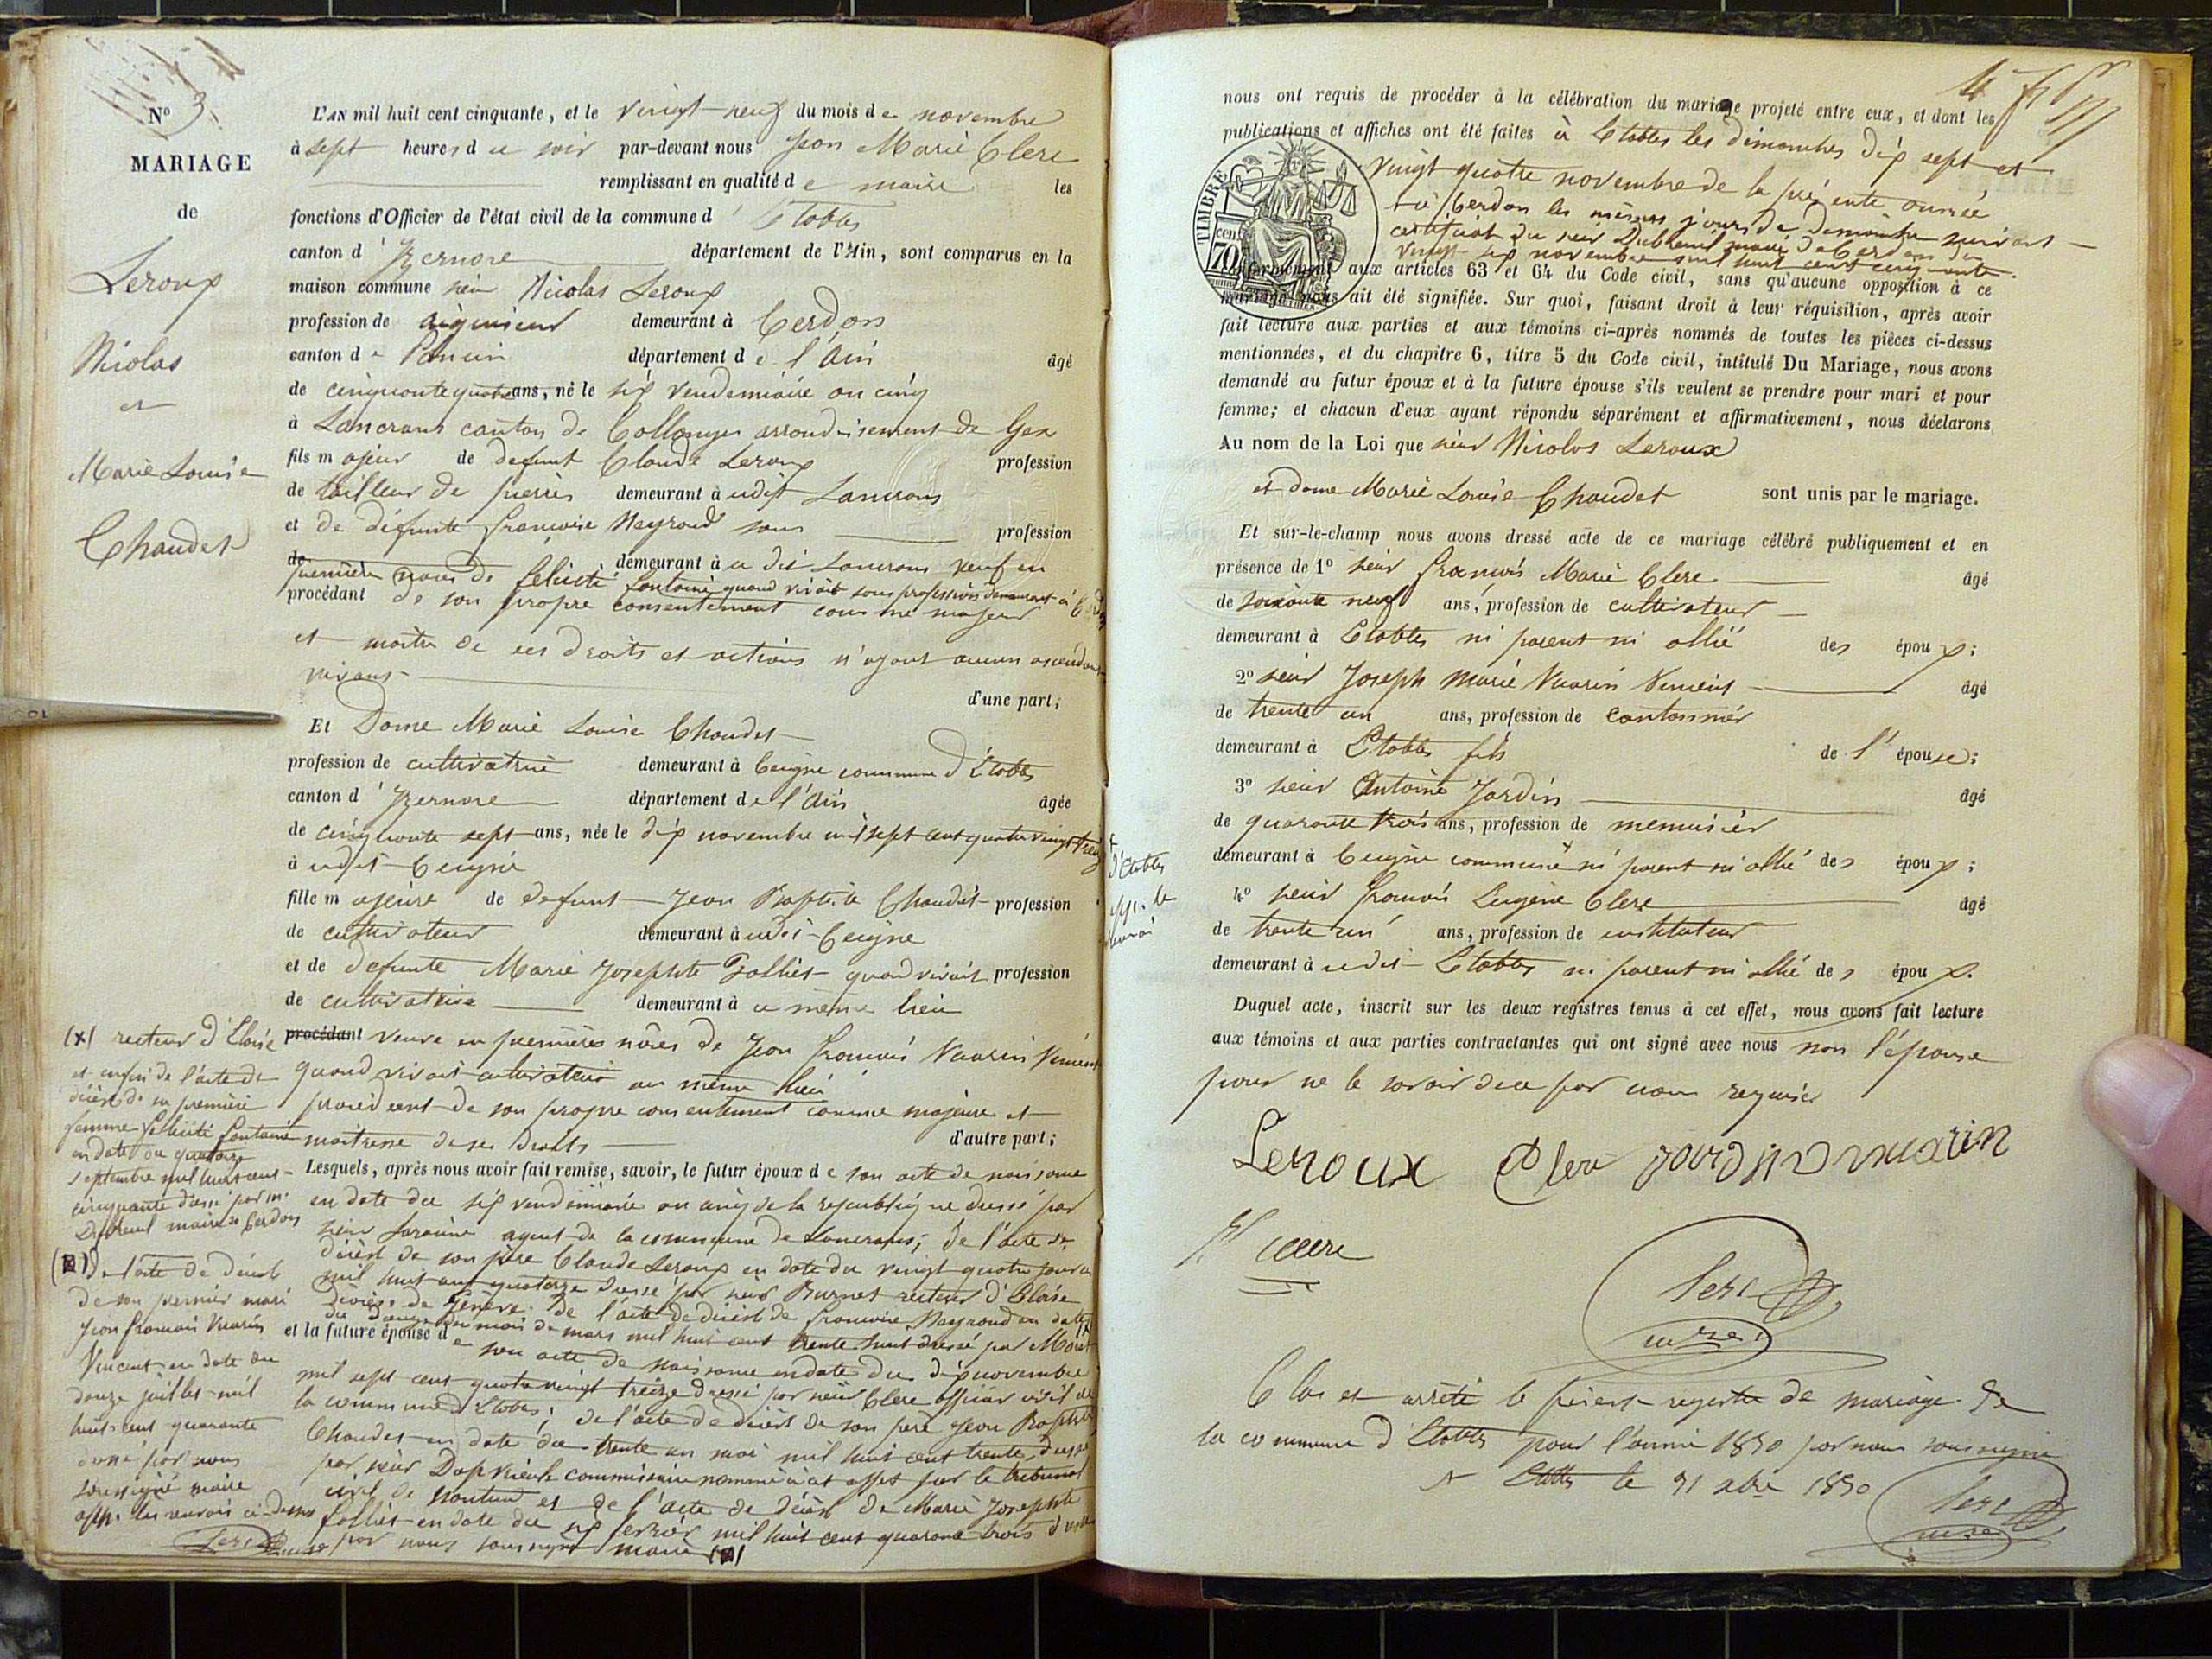 N° 3
MARIAGE
de
Leroux
Nicolas
et
Marie Louise
Chaudet
L'AN mil huit cent cinquante, et le vingt-neuf du mois de novembre
à sept heures du soir par-devant nous Jean Marie Clerc
remplissant en qualité de maire les
fonctions d'Officier de l'état civil de la commune d' Etables
canton d' Izernore département de l'Ain, sont comparus en la
maison commune sieur Nicolas Leroux
profession de demeurant à Cerdon
canton de Poncin département de l'Ain âgé
de cinquante quatre ans, né le six vendemiaire an cinq
à Lancrans canton de Collonges arrondissement de Gex
fils majeur de defunt Claude Leroux profession
de tailleur de pierres demeurant audit Lancrans
et de défunte françoise Neyroud sans profession
de demeurant à u dit Lancrans veuf en
premières noces de felicité fontaine quand vivait sans profession demeurant à
procédant de son propre consentement comme majeur
et maitre de ses droits et actions n'ayant aucun ascendant
vivant
d'une part;
Et Dame Marie Louise Chaudet
profession de cultivatrice demeurant à Ceigne commune d'Etables
canton d' Izernore département de l'Ain âgée
de cinquante sept ans, née le dix novembre mil sept cent quatre vingt treize
à udit Ceigne
fille majeure de defunt Jean Baptiste Chaudet profession
de cultivateur demeurant à udit Ceigne
et de defunte Marie Josephte Folliet quand vivait profession
de cultivatrice demeurant à u même lieu
procédant veuve en premières noces de Jean françois Vuarin Vincent
quand vivait cultivateur au même lieu
procédent de son propre consentement comme majeure et
maitresse de ses droits d'autre part;
Lesquels, après nous avoir fait remise, savoir, le futur époux de son acte de naissance
en date du six vendémiaire an cinq de la republique dressé par
sieur agent de la commune de Lancrans; de l'acte de
décès de son père Claude Leroux en date du vingt quatre
mil huit cent quatorze dressé par sieur Burnet recteur d'Eloise
diocèse de Genève. De l'acte de décès de françoise Neyroud en date
du mois de mars mil huit cent trente huit dressé par
et la future épouse de son acte de naissance en date du dix novembre
mil sept cent quatre vingt treize dressé par sieur Clerc officier civil de
la commune d'Etables; de l'acte de décès de son père Jean Baptiste
Chaudet en date du trente un mai mil huit cent trente dressé
par sieur commissaire nommé à cet effet par le tribunal
civil de Nantua et de l'acte de décès de Marie Josephte
folliet en date du six fevrier mil huit cent quarante trois dressé
par nous soussigné maire
(x) recteur d'Eloise
et enfin de l'acte de
décès de sa première
femme felicité fontaine
en date du quatorze
septembre mil huit cent
cinquante dressé par mr
Dubreuil maire de Cerdon
De l'acte de décès
de son premier mari
Jean françois Vuarin
Vincent en date du
douze juillet mil
huit cent quarante
dressé par nous
soussigné maire
app. les renvois ci-dessus
Clerc maire
nous ont requis de procéder à la célébration du mariage projeté entre eux, et dont les
publications et affiches ont été faites à Etables les dimanches dix sept et
vingt quatre novembre de la présente année
et à Cerdon les mêmes jours de dimanche suivant
certificat du sieur Dubreuil maire de Cerdon du
vingt six novembre mil huit cent cinquante.
TIMBRE
70 cent
conformément aux articles 63 et 64 du Code civil, sans qu'aucune opposition à ce
mariage nous ait été signifiée. Sur quoi, faisant droit à leur réquisition, après avoir
fait lecture aux parties et aux témoins ci-après nommés de toutes les pièces ci-dessus
mentionnées, et du chapitre 6, titre 5 du Code civil, intitulé Du Mariage, nous avons
demandé au futur époux et à la future épouse s'ils veulent se prendre pour mari et pour
femme; et chacun d'eux ayant répondu séparément et affirmativement, nous déclarons
Au nom de la Loi que sieur Nicolas Leroux
et dame Marie Louise Chaudet sont unis par le mariage.
Et sur-le-champ nous avons dressé acte de ce mariage célébré publiquement et en
présence de 1° sieur françois Marie Clerc âgé
de soixante neuf ans, profession de cultivateur
demeurant à Etables ni parent ni allié des époux;
2° sieur Joseph Marie Vuarin Vincent âgé
de trente un ans, profession de cantonnier
demeurant à Etables fils de l'épouse;
3° sieur Antoine Jardin âgé
de quarante trois ans, profession de menuisier
demeurant à Ceigne commune ni parent ni allié des époux;
d'Etables
app. le
renvoi
4° sieur françois Eugène Clerc âgé
de trente un ans, profession de instituteur
demeurant à udit Etables ni parent ni allié des époux.
Duquel acte, inscrit sur les deux registres tenus à cet effet, nous avons fait lecture
aux témoins et aux parties contractantes qui ont signé avec nous non l'épouse
pour ne le savoir de ce par nous requise
Leroux Clerc Jardin vuarin
Clerc
Clerc
maire
Clos et arrêté le présent registre de mariage de
la commune d'Etables pour l'année 1850 par nous soussigné
A Etables le 31 xbre 1850
Clerc
maire